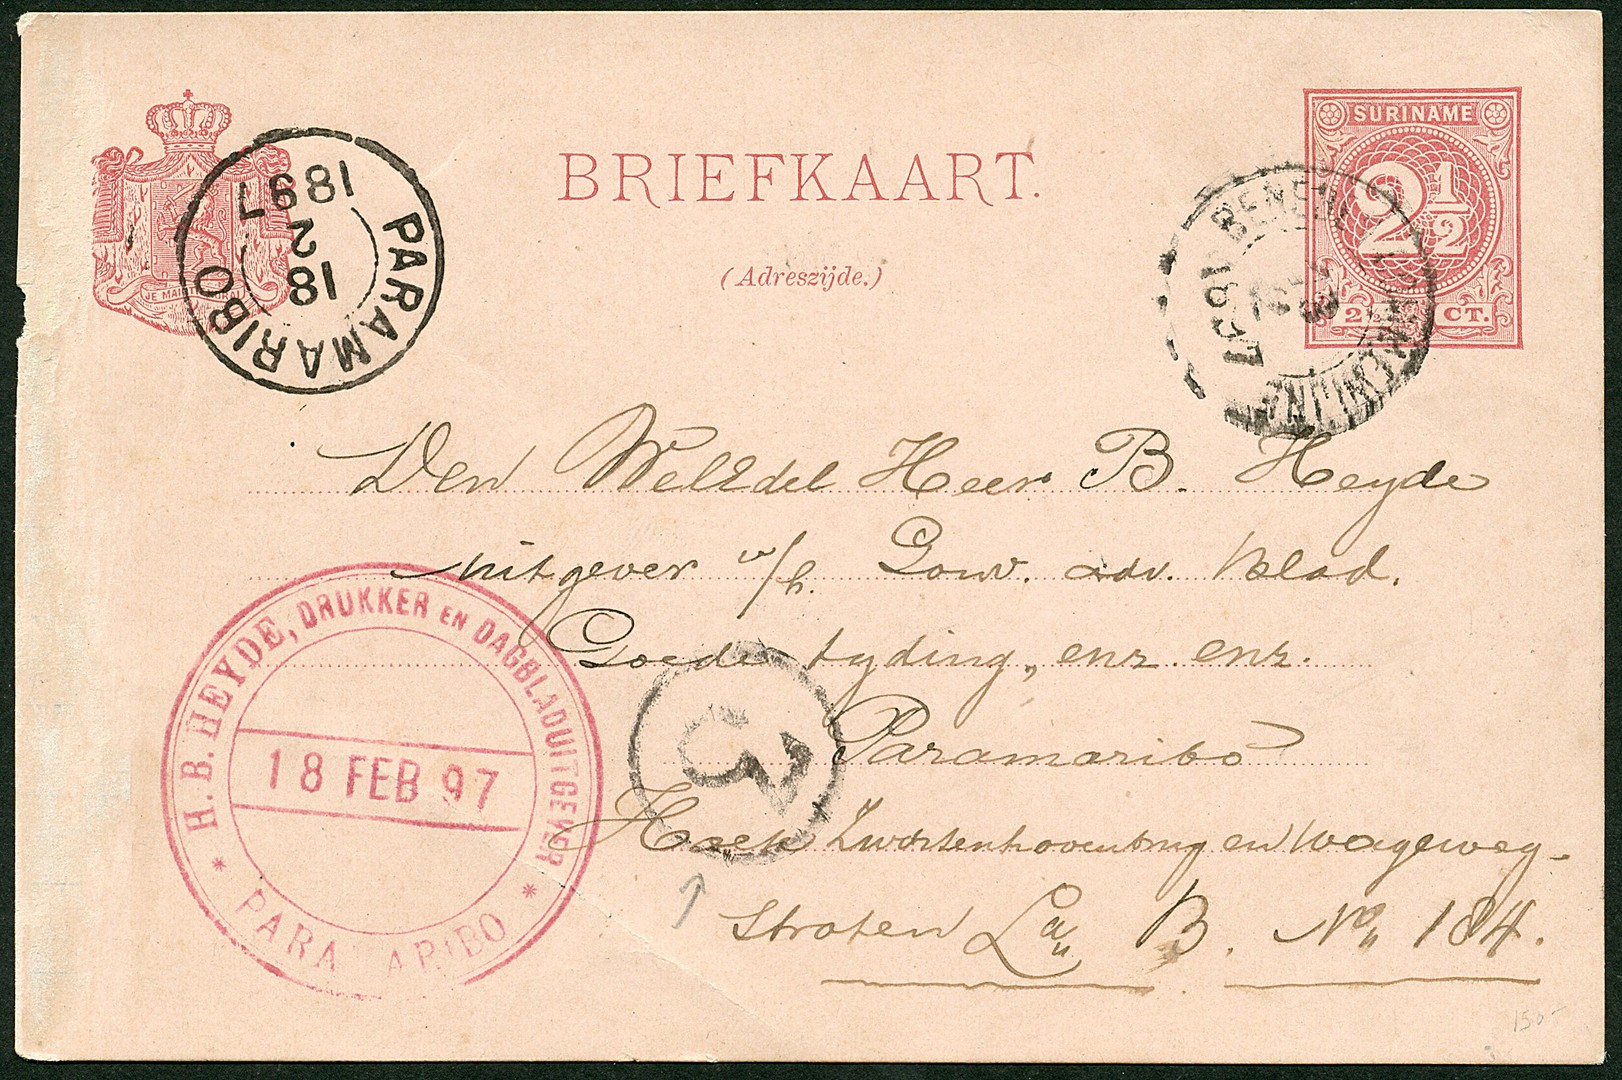 BRIEFKAART.
(Adreszijde.)
SURINAME
2 1/2
2 CT.
JE MAINTIENDRAI
PARAMARIBO
18
2
1897
BENEN
1897
Den WelEdel Heer B. Heyde
uitgever v/h. Gouv. adv. blad.
Goede tyding, enz. enz.
Paramaribo
Hoek Zwartenhovenbrug en Wageweg-
straten La B. No 184.
H. B. HEYDE, DRUKKER EN DAGBLADUITGEVER
18 FEB 97
* PARA ARIBO *
3
150-